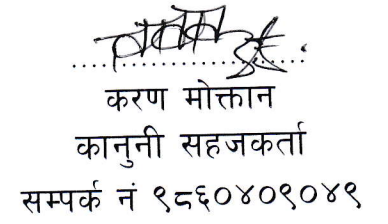 करण मोक्तान
कानुनी सहजकर्ता
सम्पर्क नं ९८६०४०९०४९